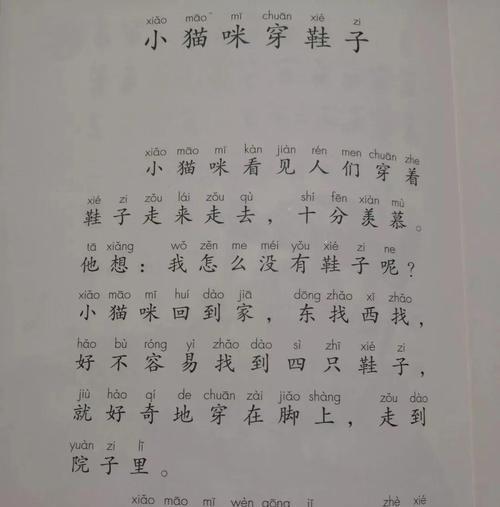 xiǎo māo mī chuān xié zi
小猫咪穿鞋子
xiǎo māo mī kàn jiàn rén men chuān zhe
小猫咪看见人们穿着
xié zi zǒu lái zǒu qù shí fēn xiàn mù
鞋子走来走去，十分羡慕。
tā xiǎng wǒ zěn me méi yǒu xié zi ne
他想：我怎么没有鞋子呢？
xiǎo māo mī huí dào jiā dōng zhǎo xī zhǎo
小猫咪回到家，东找西找，
hǎo bù róng yì zhǎo dào sì zhī xié zi
好不容易找到四只鞋子，
jiù hào qí de chuān zài jiǎo shàng zǒu dào
就好奇地穿在脚上，走到
yuàn zi lǐ
院子里。
xiǎo māo mī wèn gōng jī zhè xié